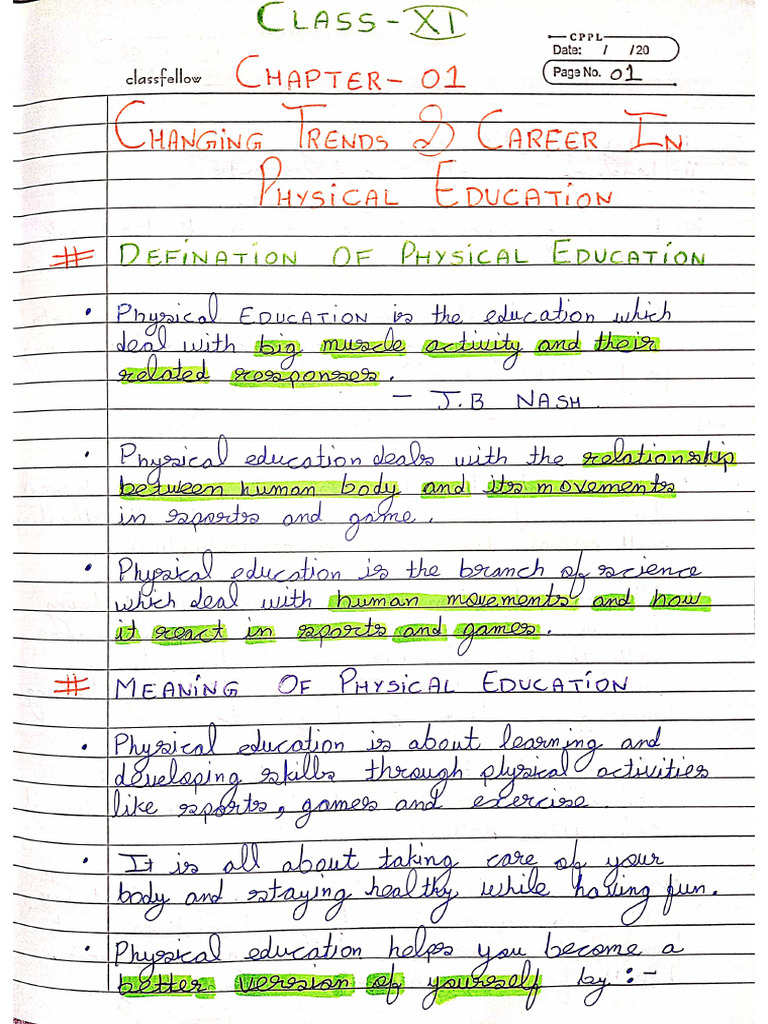 CLASS-XI
CPPL
Date: / /20
classfellow
CHAPTER-01
Page No. 01
CHANGING TRENDS & CAREER IN
PHYSICAL EDUCATION
# DEFINATION OF PHYSICAL EDUCATION
• Physical EDUCATION is the education which
deal with big muscle activity and their
related responses.
- J.B NASH
• Physical education deals with the relationship
between human body and its movements
in sports and game.
• Physical education is the branch of science
which deal with human movements and how
it react in sports and games.
# MEANING OF PHYSICAL EDUCATION
• Physical education is about learning and
developing skills through physical activities
like sports, games and exercise.
• It is all about taking care of your
body and staying healthy while having fun.
• Physical education helps you become a
better version of yourself by :-